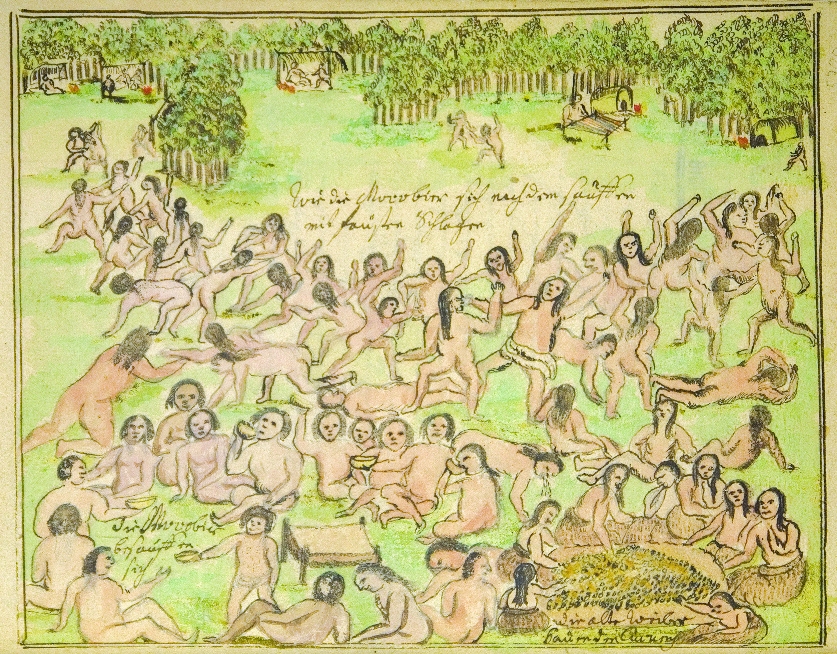 Wie die Mocobier sich nach dem sauffen
mit fausten Schlagen
die Mocobier
besauffen
sich
wie alte Weiber